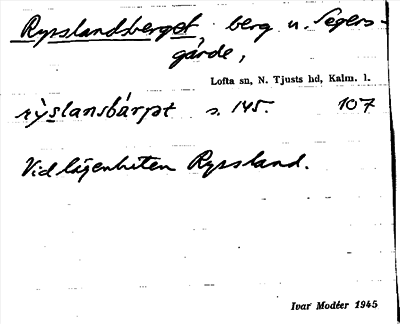 Rysslandsberget, berg u. Segers-
gärde,
Lofta sn, N. Tjusts hd, Kalm. l.
rỳslansbár̨t s. 145. 107
Vid lägenheten Ryssland.
Ivar Modéer 1945